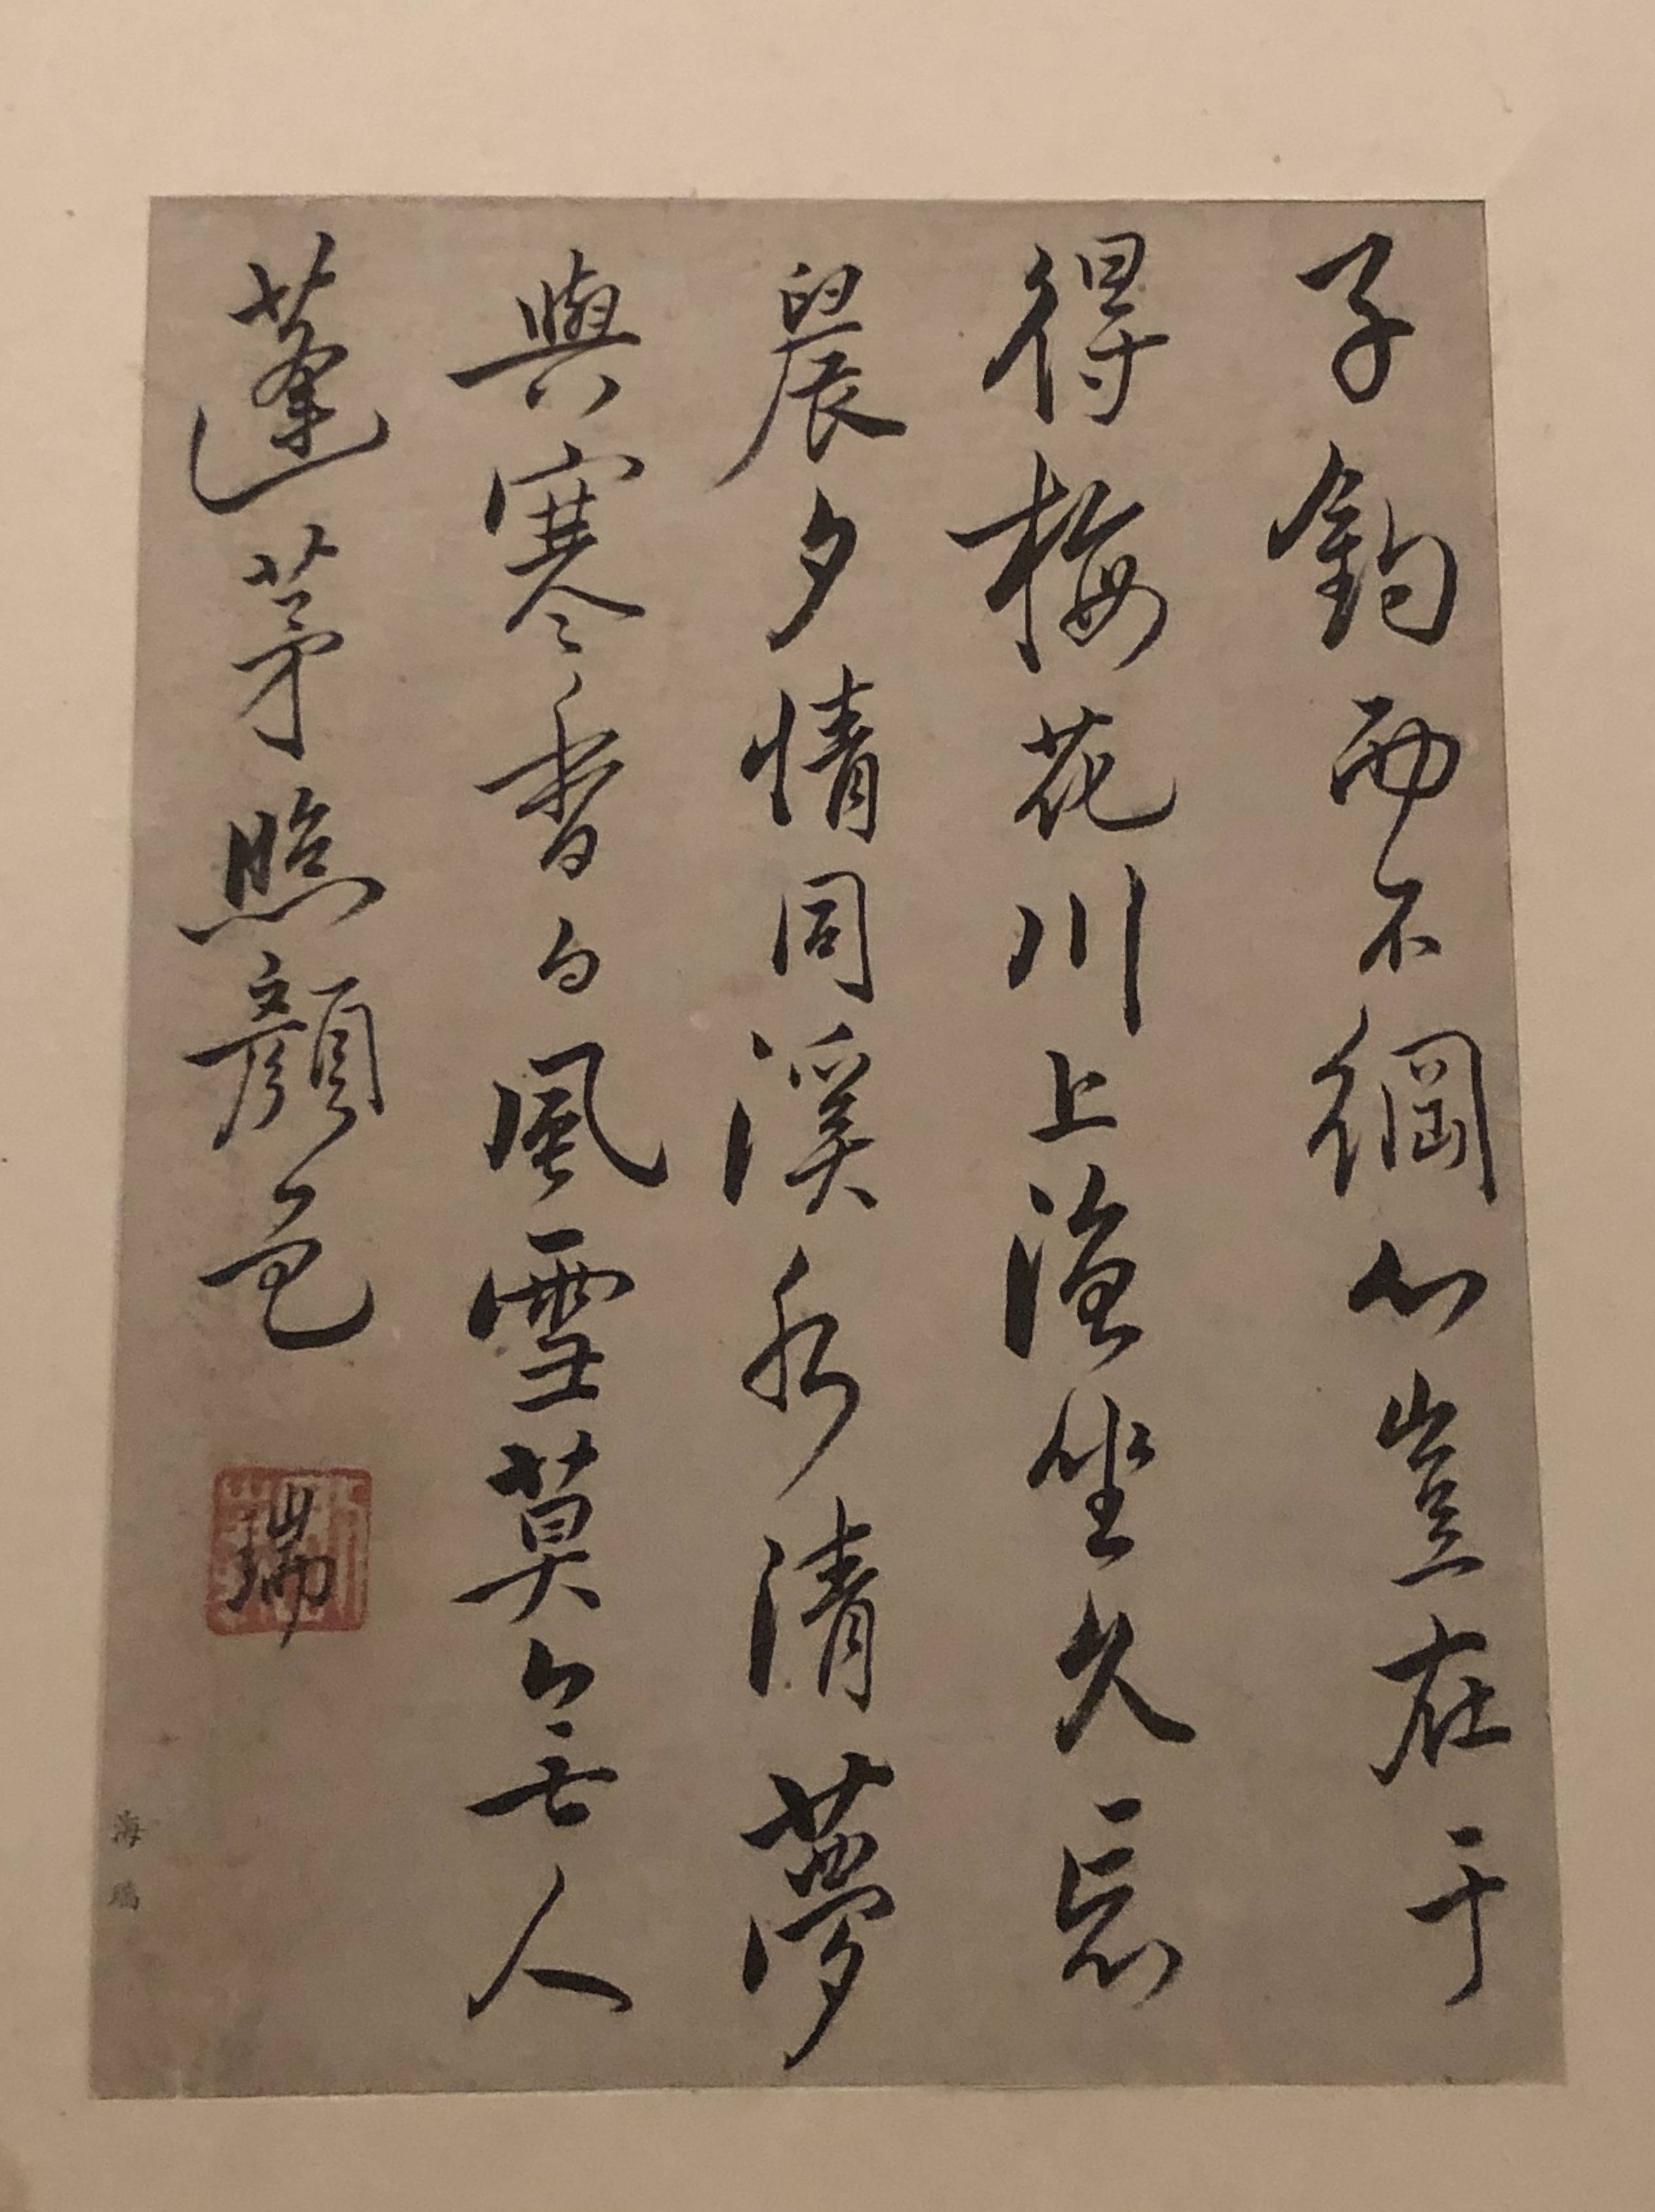 子釣而不綱心豈在于
得梅花川上漁坐久忘
晨夕情同溪水清夢
與寒香白風雪莫令無人
蓬茅照顏色
瑞
海瑞